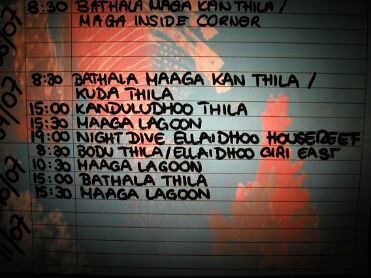 8:30 BATHALA MAGA KAN THILA /
MAGA INSIDE CORNER
8:30 BATHALA MAAGA KAN THILA /
KUDA THILA
15:00 KANDULUDHOO THILA
15:30 MAAGA LAGOON
19:00 NIGHT DIVE ELLAIDHOO HOUSEREEF
8:30 BODU THILA/ELLAIDHOO GIRI EAST
10:30 MAAGA LAGOON
15:00 BATHALA THILA
15:30 MAAGA LAGOON
11/07